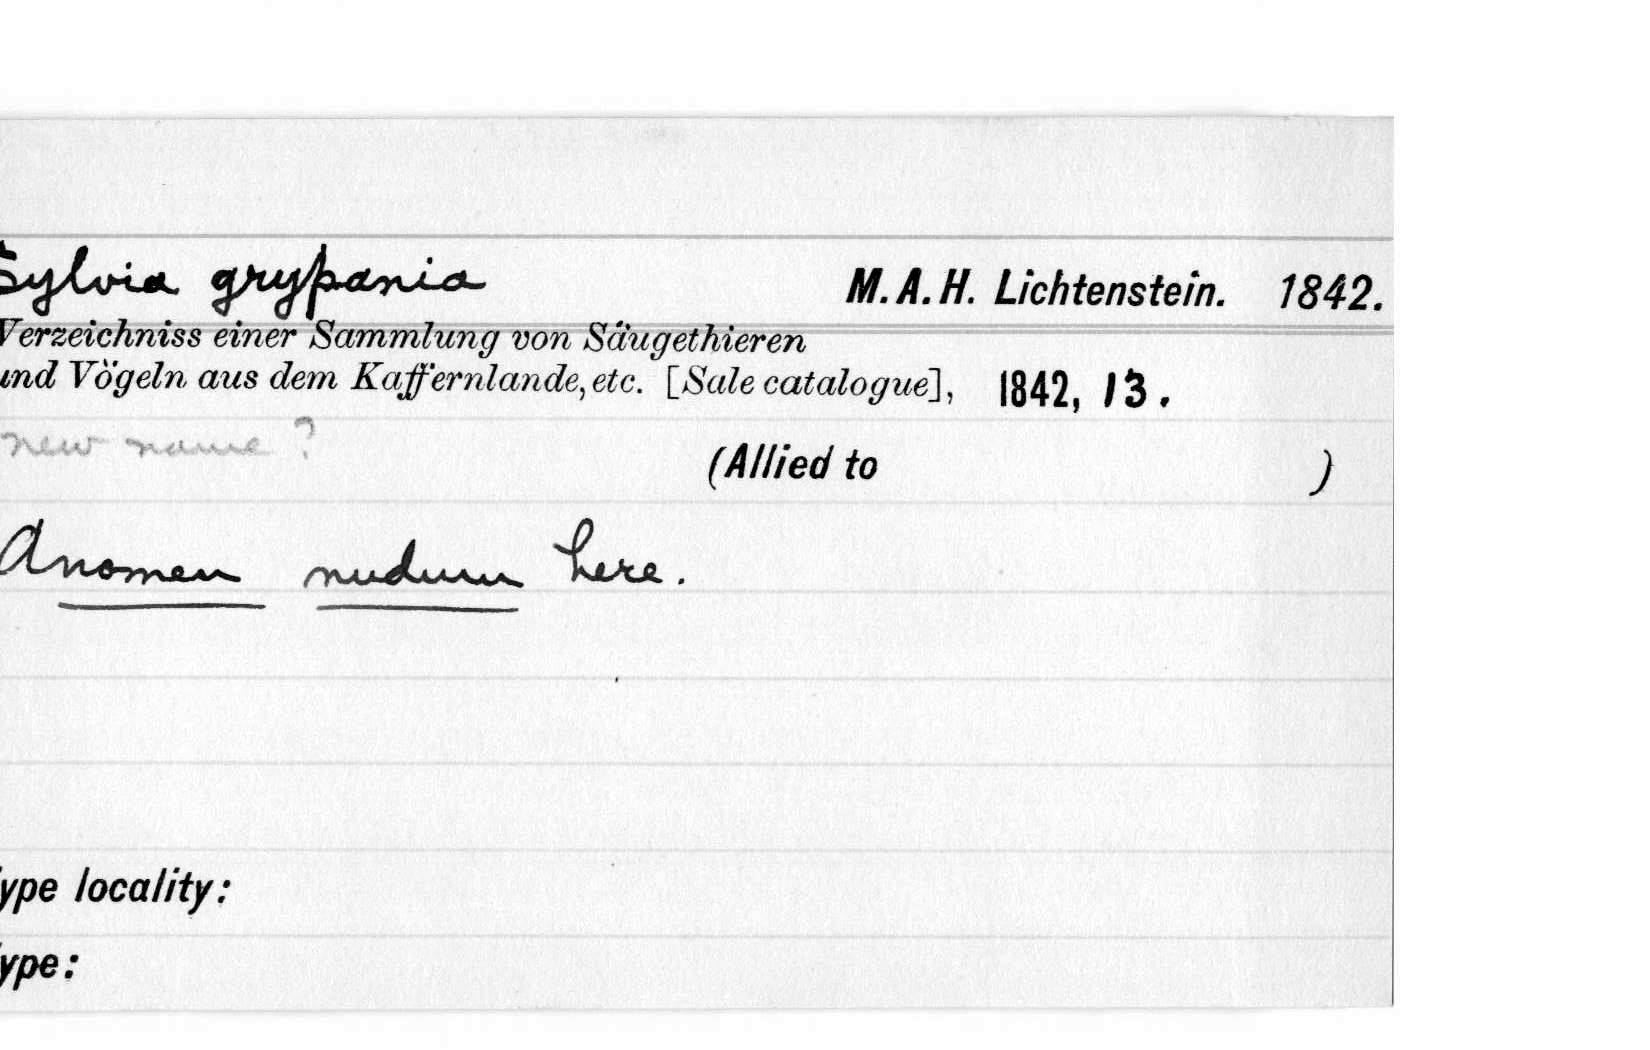 Sylvia grypania M. A. H. Lichtenstein. 1842.
Verzeichniss einer Sammlung von Säugethieren
und Vögeln aus dem Kaffernlande, etc. [Sale catalogue], 1842, 13.
new name?
(Allied to )
A nomen nudum here.
ype locality:
ype: